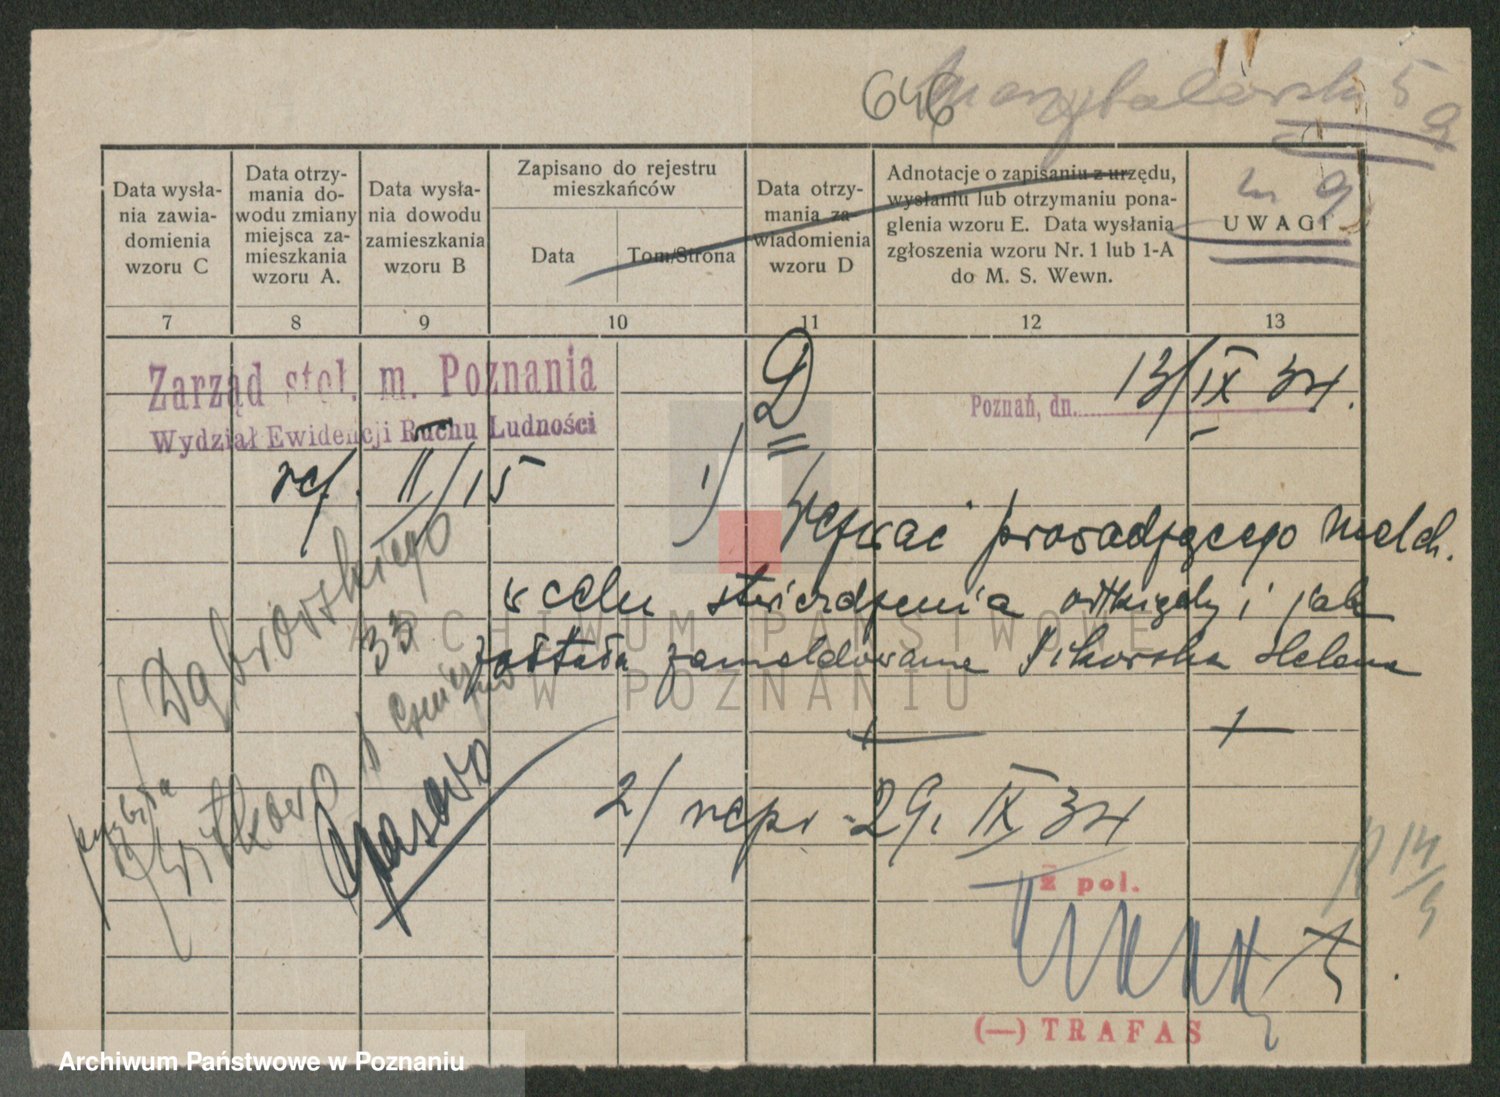 646
5
9
m 9
Data wysła-
nia zawia-
domienia
wzoru C
Data otrzy-
mania do-
wodu zmiany
miejsca za-
mieszkania
wzoru A.
Data wysła-
nia dowodu
zamieszkania
wzoru B
Zapisano do rejestru
mieszkańców
Data
Tom/Strona
Data otrzy-
mania za-
wiadomienia
wzoru D
Adnotacje o zapisaniu z urzędu,
wysłaniu lub otrzymaniu pona-
glenia wzoru E. Data wysłania
zgłoszenia wzoru Nr. 1 lub 1-A
do M. S. Wewn.
UWAGI
7 8 9 10 11 12 13
Zarząd stoł. m. Poznania
Wydział Ewidencji Ruchu Ludności
ref. II/15
D
Poznań, dn. 13/IX 34.
1) Wezwać prowadzącego meld.
w celu stwierdzenia i jak
została zameldowana Sikorska Helena
Dąbrowskiego
33
Witkowo
2/ 29. IX 34
14/9
z pol.
(—) TRAFAS
ARCHIWUM PAŃSTWOWE
W POZNANIU
Archiwum Państwowe w Poznaniu